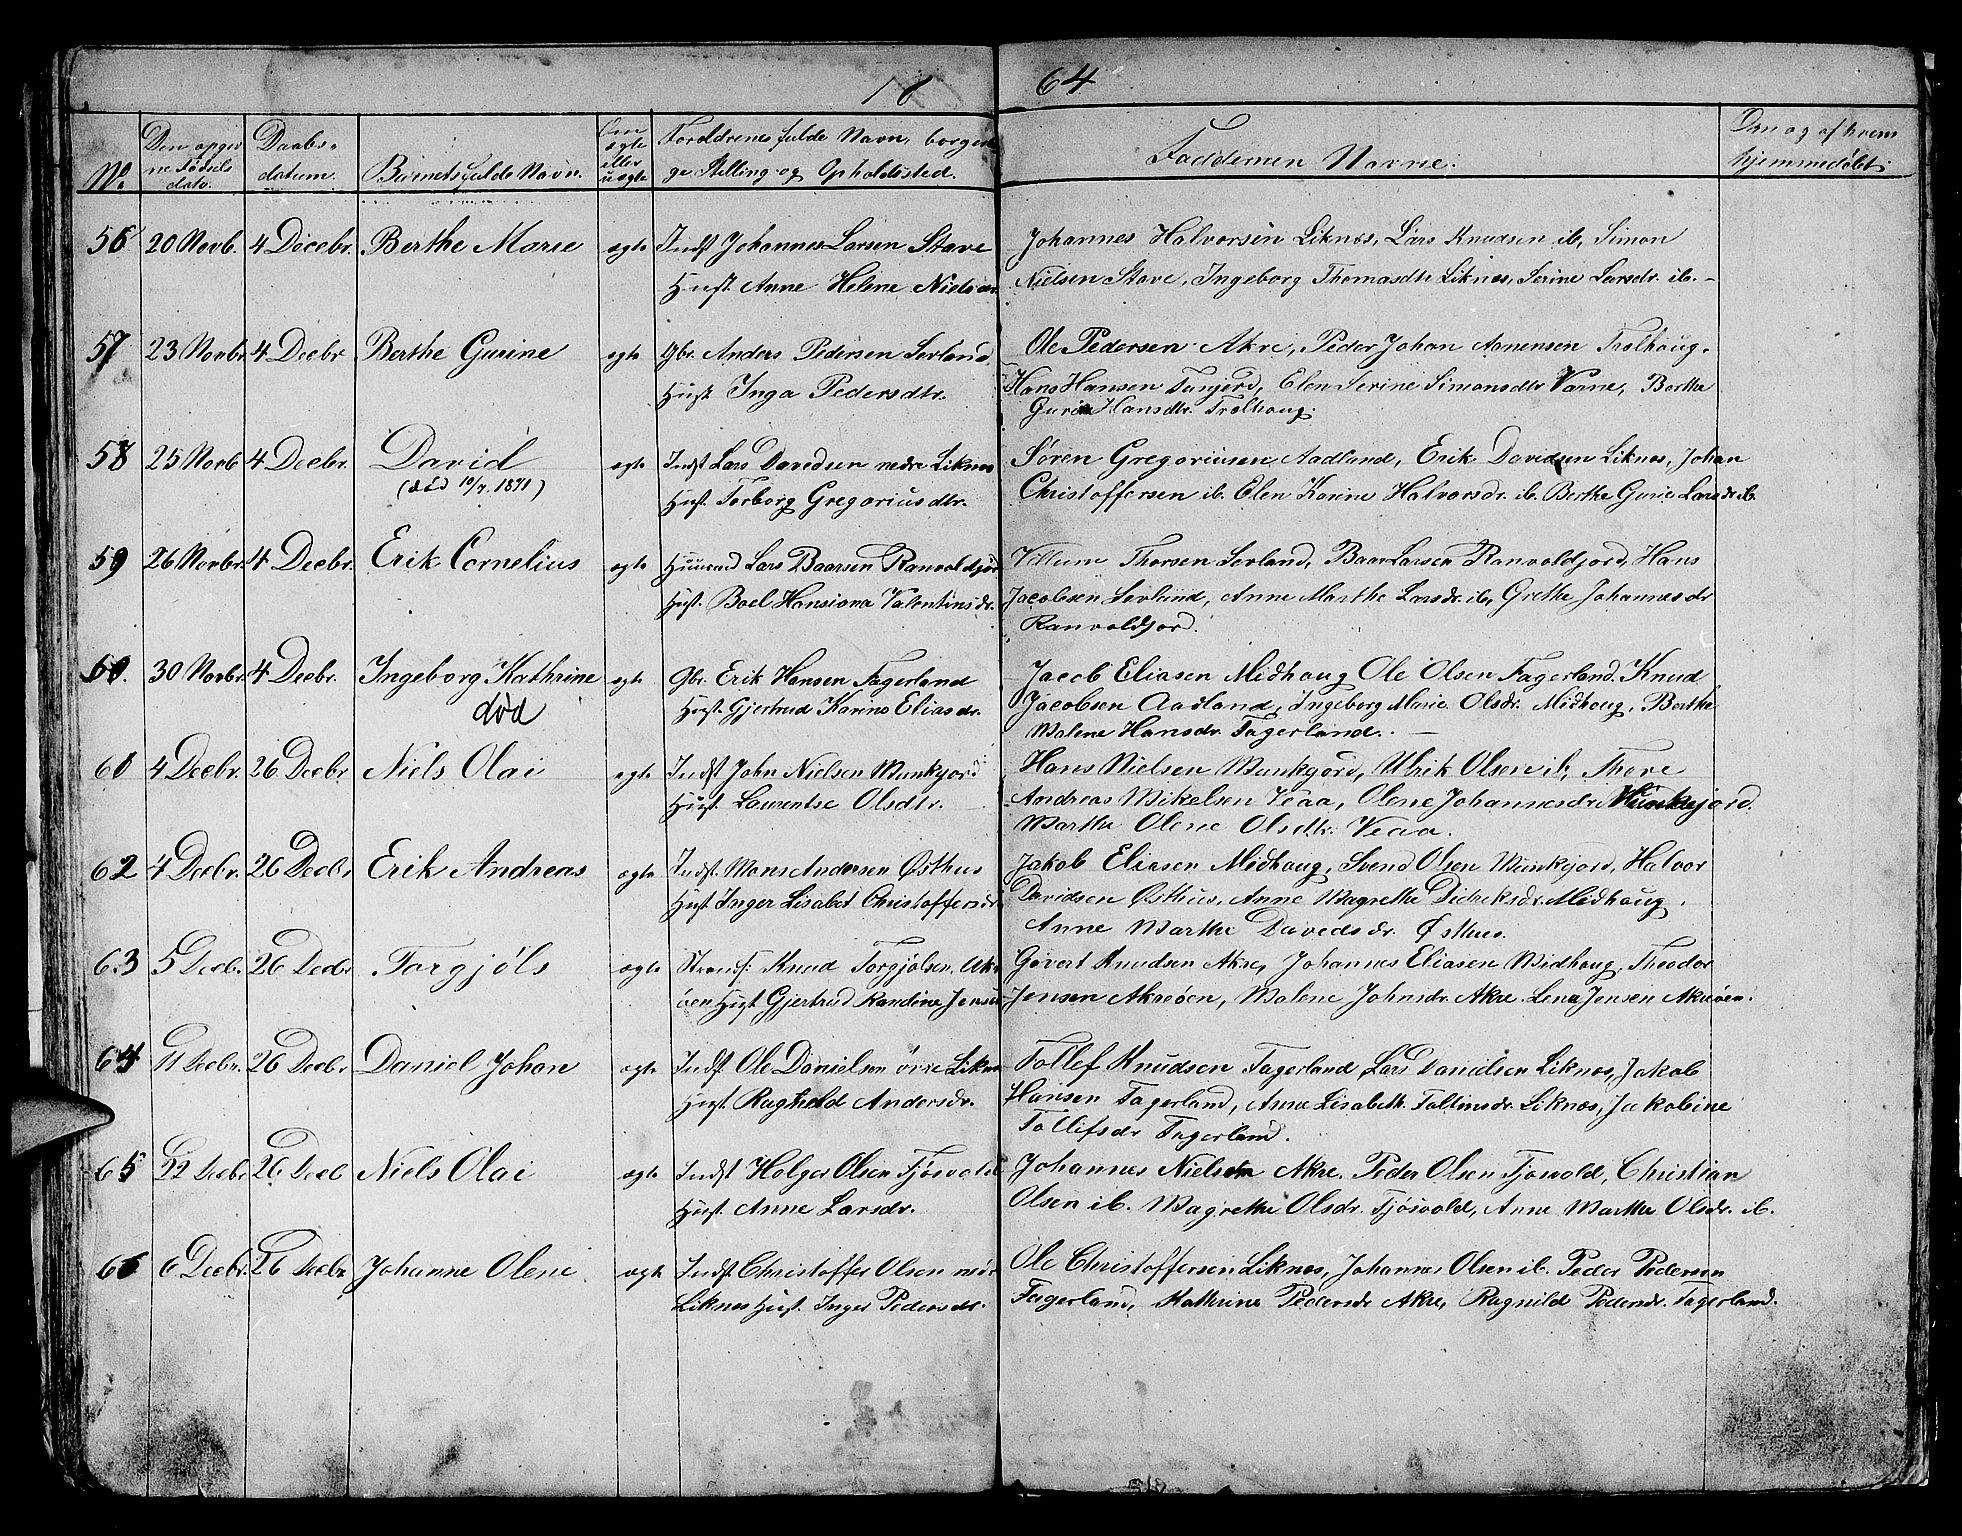 18 64
No. Den opgivne Fødsels dato. Daabsdatum. Barnets fulde Navn. Om ægte eller uægte Forældrenes fulde Navn, borgerlige Stilling og Opholdssted. Faddernes Navne. Om og af hvem hjemmedøbt.
56 20 Novb. 4 Decebr. Berthe Marie ægte Indst Johannes Larsen Stave
Hust. Anne Helene Nielsdr.
Johannes Halvorsen Liknes, Lars Knudsen ib, Simon
Nielsen Stave, Ingeborg Thomasdtr Liknes, Serine Larsdr. ib. -
57 23 Novbr 4 Decbr Berthe Gurine ægte Gbr. Anders Pedersen Sevland
Hust. Inga Pedersdtr.
Ole Pedersen Akre, Peder Johan Aanensen Trolhaug.
Hans Hansen Tanjerd, Elen Serine Simonsdtr Varne, Berthe
Gurine Hansdtr. Trolhaug.
58 25 Novb 4 Decbr. David ægte Indst Lars Davidsen nedre Liknes
(død 10/7. 1871)
Hust. Torborg Gregoriusdtr.
Søren Gregoriusen Aadland, Erik Davidsen Liknes, Johan
Christoffersen ib. Elen Karine Halvorsdr. ib. Berthe Gurie Larsdr ib.
59 26 Novbr. 4 Decbr. Erik Cornelius ægte Huusmd Lars Baarsen Ranvoldjord
Hust. Boel Hansiana Valentinsdr.
Villum Thorsen Sevland, Baar Larsen Ranvoldjord, Hans
Jacobsen Sevland, Anne Marthe Larsdr. ib, Grethe Johannesdr
Ranvoldjord.
60. 30 Novbr. 4 Decbr. Ingeborg Kathrine ægte Gbr. Erik Hansen Fagerland
død
Hust. Gjertrud Karine Eliasdr.
Jacob Eliasen Midhaug Ole Olsen Fagerland. Knud
Jacobsen Aadland, Ingeborg Marie Olsdr. Midhaug, Berthe
Malene Hansdr. Fagerland. -
61 4 Decbr. 26 Decbr Niels Olai ægte Indst John Nielsen Munkejord
Hust. Laurentse Olsdtr.
Hans Nielsen Munkejord, Ulrik Olsen ib, Thore
Andreas Mikelsen Veaa, Olene Johannesdr. Munkejord.
Marthe Olene Olsdtr. Veaa.
62 4 Decbr. 26 Decbr Erik Andreas ægte Indst. Mons Andersen Østhus
Hust Inger Lisabet Christoffersdr.
Jakob Eliasen Midhaug, Svend Olsen Munkejord, Halvor
Davidsen Østhus, Anne Magrethe Didriksdr. Midhaug.
Anne Marthe Davidsdr. Østhus.
63 5 Decbr. 26 Decbr Torgjøls ægte Strandf. Knud Torgjølsen, Akre
øen Hust Gjertrud Randine Jensdr.
Govert Knudsen Akre, Johannes Eliasen Midhaug, Theodor
Jensen Akreøen, Malene Johnsdr. Akre. Lena Jensen Akreøen.
64 11 Decbr. 26 Decbr Daniel Johan ægte Indst Ole Danielsen øvre Liknes
Hust. Raghild Andersdr.
Tollef Knudsen Fagerland Lars Danielsen Liknes, Jakob
Hansen Fagerland, Anne Lisabeth Foltinsdr. Liknes, Jakobine
Tollefsdr Fagerland.
65 22 Decbr 26 Decb Niels Olai ægte Indst Holger Olsen Fjøsvold
Hust. Anne Larsdr.
Johannes Nielsen Akre. Peder Olsen Fjøsvold, Christian
Olsen ib. Magrethe Olsdr. Fjøsvold, Anne Marthe Olsdr. ib.
66 6 Decbr. 26 Decbr Johanne Olene ægte Indst Christoffer Olsen nedr
Liknes Hust. Inger Pedersdr.
Ole Christoffersen Liknes, Johannes Olsen ib. Peder Pedersen
Fagerland, Kathrine Pedersdr Akre, Ragnild Pedersdr. Fagerland.